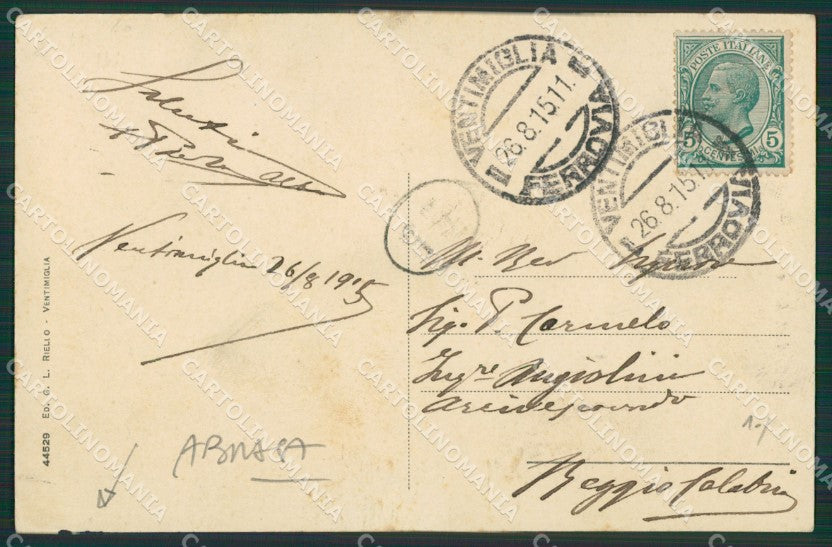 Saluti
Ventimiglia 26/8 1915
44529 ED. G. L. RIELLO - VENTIMIGLIA
ABRASA
VENTIMIGLIA
26.8.15.11
FERROVIA
VENTIMIGLIA
26.8.15.11
FERROVIA
POSTE ITALIANE
5 CENTESIMI 5
M. Rev Signore
Sig. P. Carmelo
Angiolini
Arcivescovado
Reggio Calabria
CARTOLINOMANIA